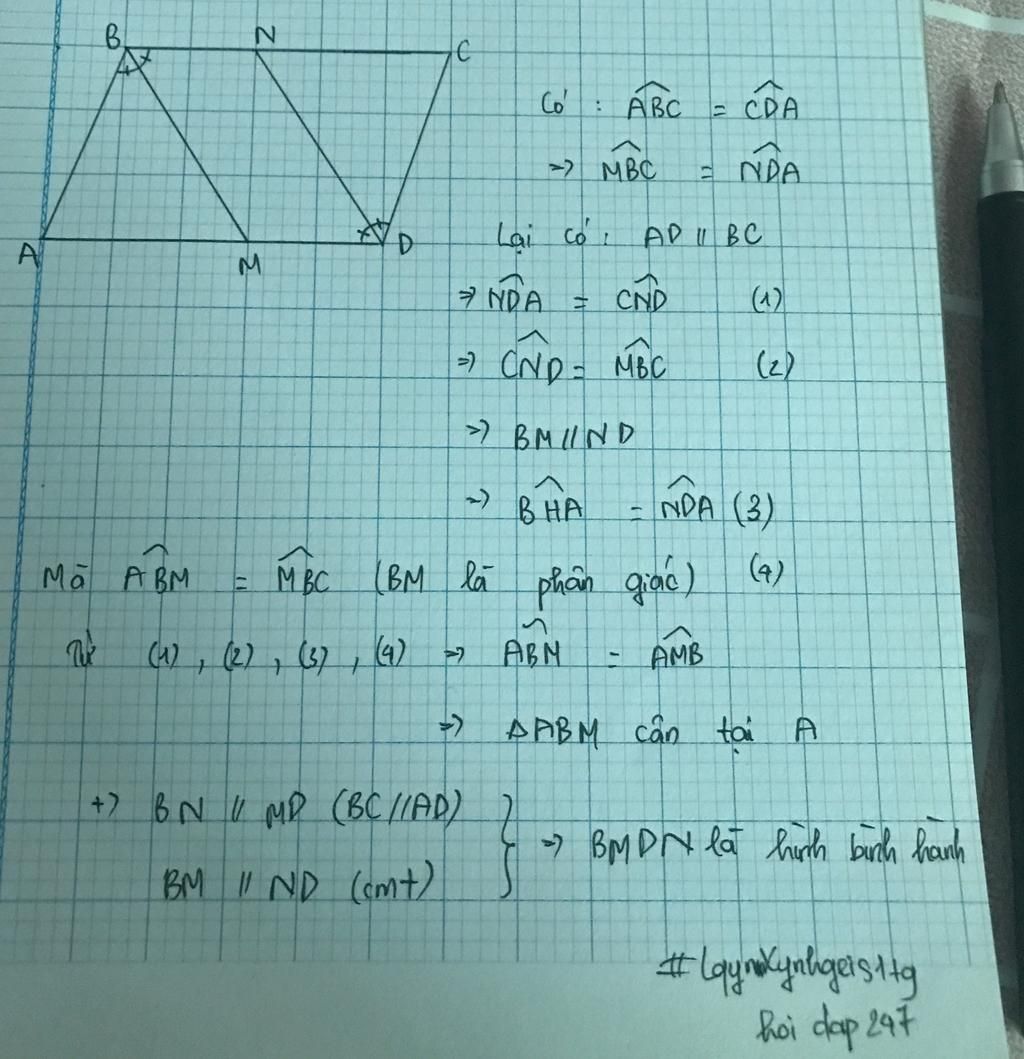 B N C
A M D
Có : ABC = CDA
=> MBC = NDA
Lại có : AD // BC
=> NDA = CND (1)
=> CND = MBC (2)
=> BM // ND
=> BHA = NDA (3)
Mà ABM = MBC (BM là phân giác) (4)
Từ (1) , (2) , (3) , (4) => ABM = AMB
=> ΔABM cân tại A
+> BN // MD (BC // AD)
BM // ND (cmt) } => BMDN là hình bình hành
hoi dap 247